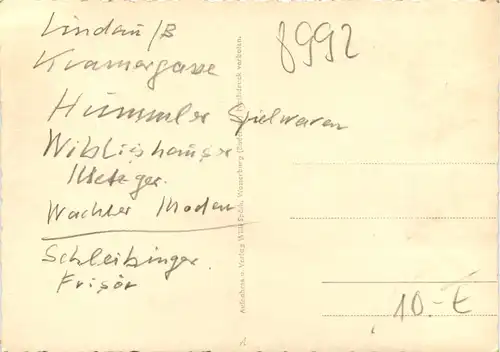 Lindau/B
Kramergasse
8992
Hummler Spielwaren
Wiblishauser
Metzger.
Wachter Moden
Schleibinger.
Frisör
Aufnahme u. Verlag Wasserburg (Bodensee) Nachdruck verboten.
10.-€